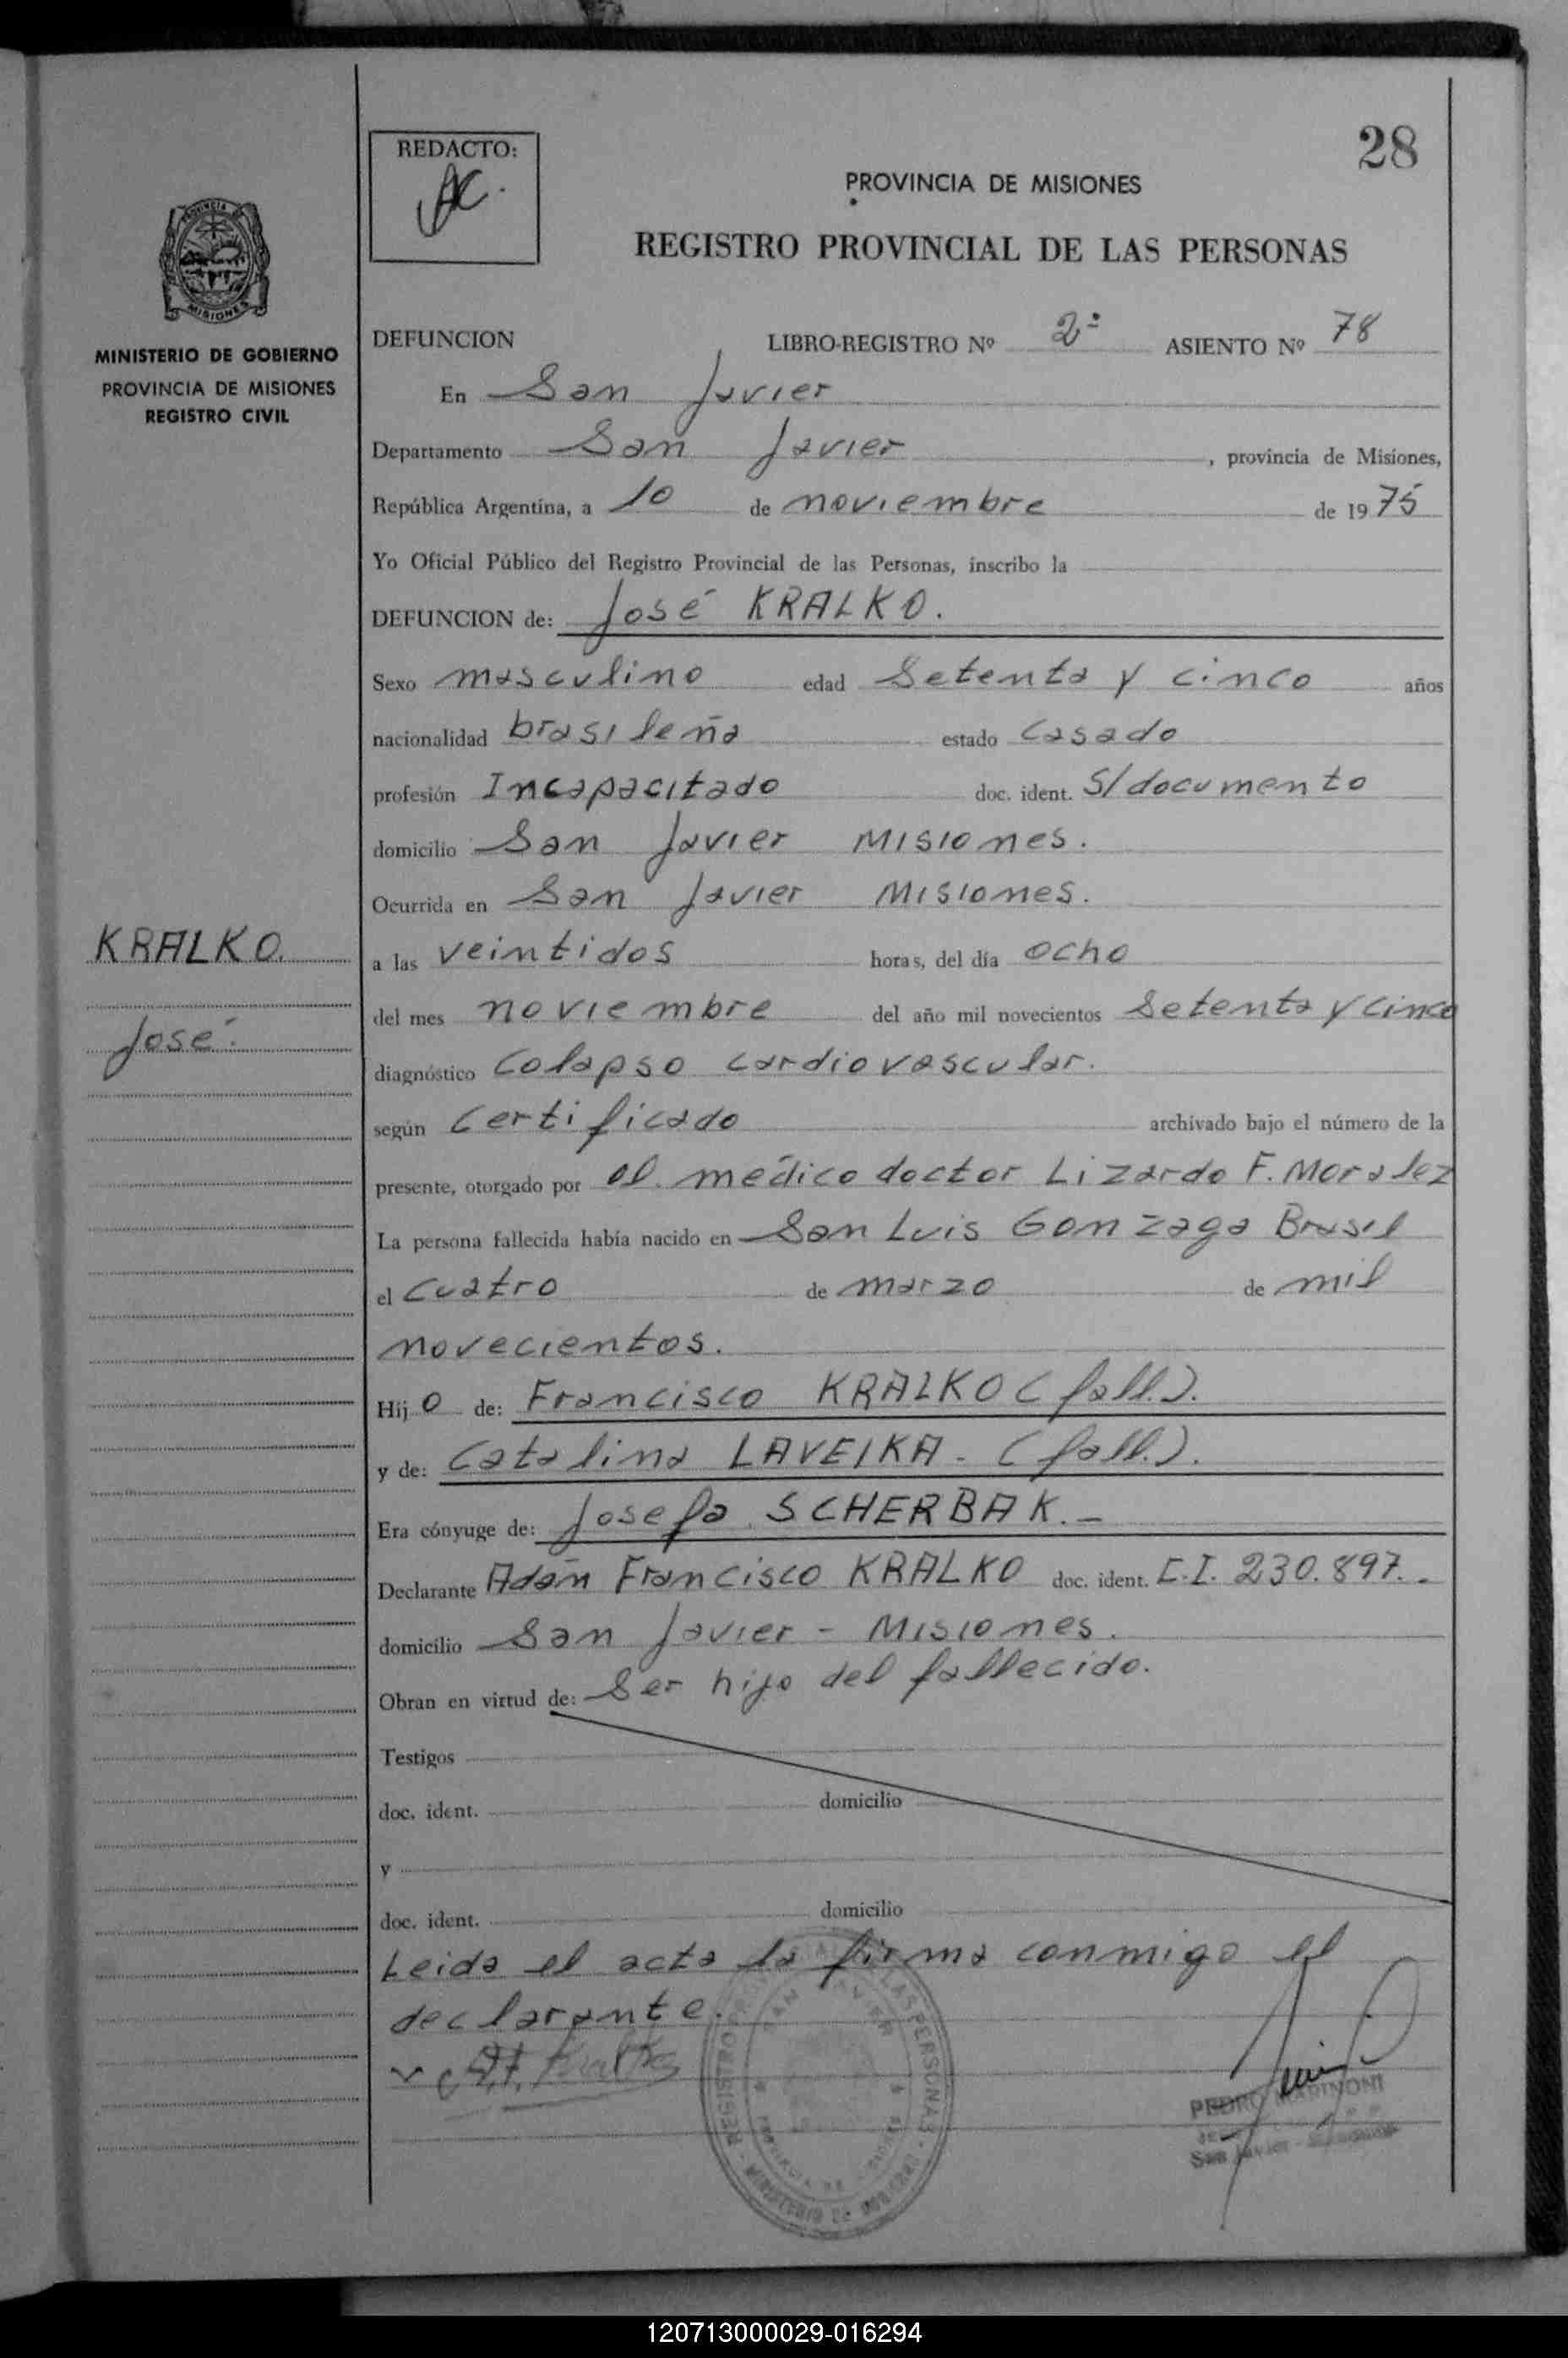 28
REDACTO:
AC.
PROVINCIA DE MISIONES
REGISTRO PROVINCIAL DE LAS PERSONAS
PROVINCIA
MISIONES
MINISTERIO DE GOBIERNO
PROVINCIA DE MISIONES
REGISTRO CIVIL
DEFUNCION LIBRO-REGISTRO Nº 2º ASIENTO Nº 78
En San Javier
Departamento San Javier, provincia de Misiones,
República Argentina, a 10 de noviembre de 1975
Yo Oficial Público del Registro Provincial de las Personas, inscribo la
DEFUNCION de: José KRALKO.
Sexo masculino edad Setenta y cinco años
nacionalidad brasileña estado Casado
profesión Incapacitado doc. ident. S/documento
domicilio San Javier Misiones.
Ocurrida en San Javier Misiones.
KRALKO.
a las veintidos horas, del día ocho
del mes noviembre del año mil novecientos Setenta y cinco
José.
diagnóstico Colapso cardiovascular.
según Certificado archivado bajo el número de la
presente, otorgado por el médico doctor Lizardo F. Moralez
La persona fallecida había nacido en San Luis Gonzaga Brasil
el Cuatro de marzo de mil
novecientos.
Hijo de: Francisco KRALKO (fall.).
y de: Catalina LAVEIKA - (fall.).
Era cónyuge de: Josefa SCHERBAK.-
Declarante Adán Francisco KRALKO doc. ident. C.I. 230.897.
domicilio San Javier - Misiones.
Obran en virtud de: Ser hijo del fallecido.
Testigos
doc. ident. domicilio
y
doc. ident. domicilio
Leida el acta la firma conmigo el
declarante.
PEDRO MARINONI
San Javier -
120713000029-016294